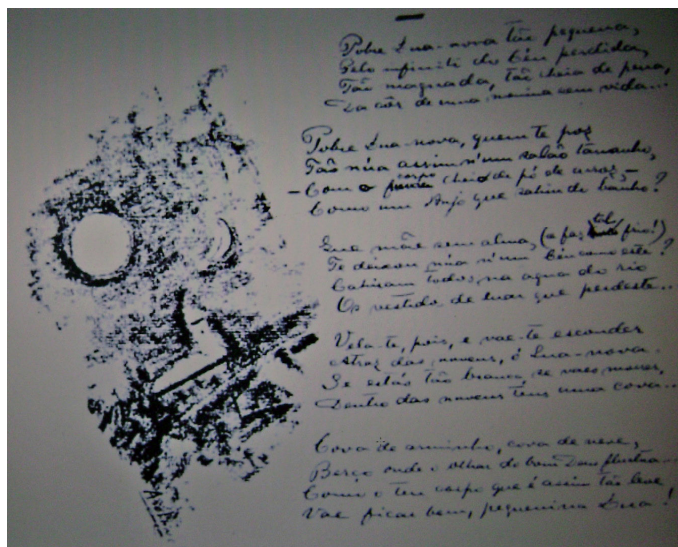 Pobre Lua-nova tão pequena,
Pelo infinito do Céu perdida,
Tão magoada, tão cheia de pena,
Da côr de uma menina sem vida...
Pobre Lua-nova, quem te poz
Tão núa assim n'um salão tamanho,
- Com o corpo cheio de pó de arroz, -
Como um Anjo que sahiu do banho?
Que mãe sem alma, (e faz tal frio!)
Te deixou núa n'um Céu como este?
Cahiram todos na agua do rio
Os vestido de luar que perdeste...
Vela-te, pois, e vae-te esconder
Atraz das nuvens, ó Lua-nova.
Se estás tão branca, se vaes morrer,
Dentro das nuvens tens uma cova...
Cova de arminho, cova de neve,
Berço onde o olhar do bom Deus fluctua...
Como o teu corpo que é assim tão leve
Vae ficar bem, pequenina Lua!